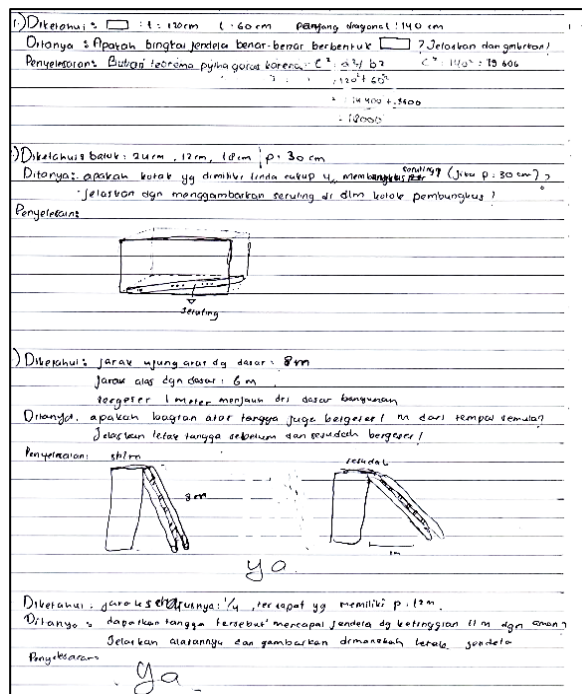 1.) Diketahui : t : 120 cm l : 60 cm panjang diagonal : 140 cm
Ditanya : Apakah bingkai jendela benar-benar berbentuk ? Jelaskan dan gmbrkan!
Penyelesaian : Bukan teorema pythagoras karena : c² : a² b² c² : 140² : 19 600
= 120² + 60²
= 14 400 + 3600
= 18000
) Diketahui : balok : 24cm , 12cm , 18cm p : 30 cm
Ditanya : apakah kotak yg dimiliki linda cukup u/ membungkus seruling (jika p : 30 cm) ?
jelaskan dgn menggambarkan seruling di dlm kotak pembungkus !
Penyelesaian :
seruling
) Diketahui : jarak ujung atas dg dasar : 8m
jarak alas dgn dasar : 6 m
bergeser 1 meter menjauh dri dasar bangunan
Ditanya : apakah bagian atas tangga juga bergeser 1 m dari tempat semula?
Jelaskan letak tangga sebelum dan sesudah bergeser !
Penyelesaian : sblm
sesudah
8m
1m
ya
Diketahui : jarak seharusnya : 1/4 , terdapat yg memiliki p : 12m
Ditanya : dapatkah tangga tersebut mencapai jendela dg ketinggian 11 m dgn aman?
Jelaskan alasannya dan gambarkan dimanakah letak jendela
Penyelesaian
Ya